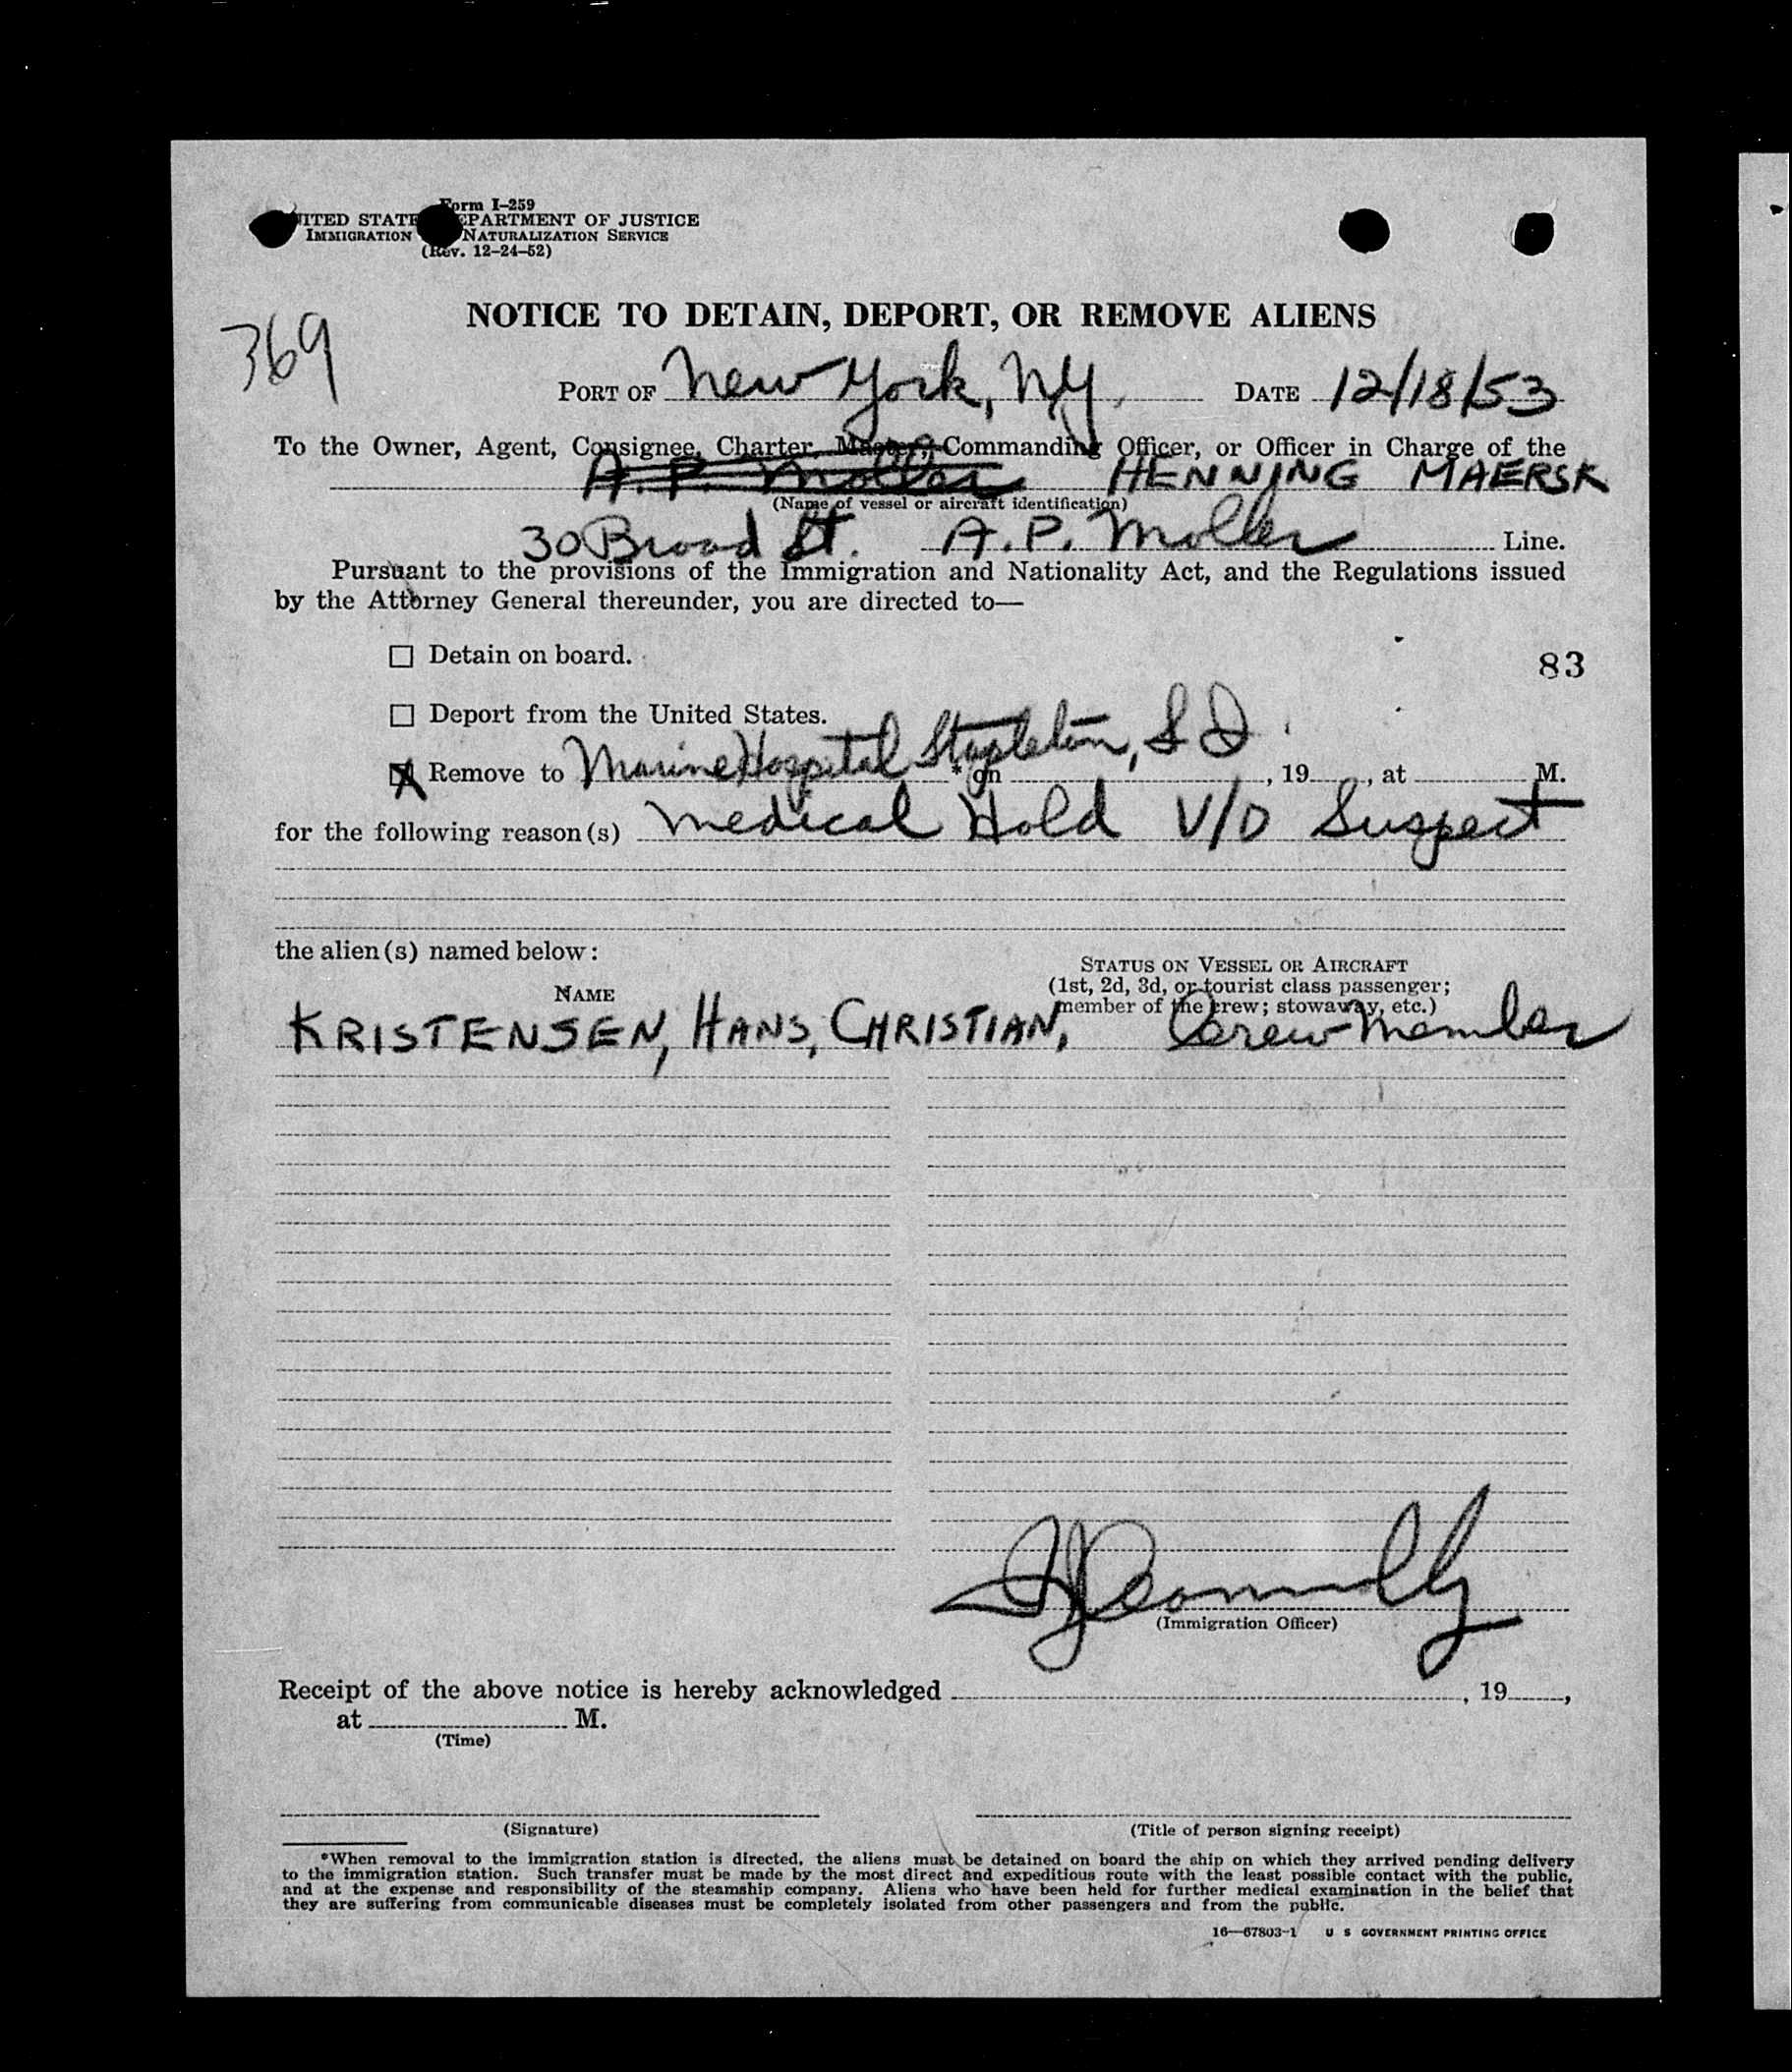 Form I-259
UNITED STATES DEPARTMENT OF JUSTICE
IMMIGRATION NATURALIZATION SERVICE
(Rev. 12-24-52)
NOTICE TO DETAIN, DEPORT, OR REMOVE ALIENS
369
PORT OF New York, NY, DATE 12/18/53
To the Owner, Agent, Consignee, Charter, Master, Commanding Officer, or Officer in Charge of the
A. P. Moller HENNING MAERSK
(Name of vessel or aircraft identification)
30 Broad St. A. P. Moller Line.
Pursuant to the provisions of the Immigration and Nationality Act, and the Regulations issued
by the Attorney General thereunder, you are directed to—
☐ Detain on board.
83
☐ Deport from the United States.
☒ Remove to Marine Hospital Stapleton, S I * on , 19 , at M.
for the following reason(s) Medical Hold V/D Suspect
the alien(s) named below:
STATUS ON VESSEL OR AIRCRAFT
(1st, 2d, 3d, or tourist class passenger;
NAME
member of the crew; stowaway, etc.)
KRISTENSEN, HANS, CHRISTIAN, Crew Member
Connolly
(Immigration Officer)
Receipt of the above notice is hereby acknowledged , 19 ,
at M.
(Time)
(Signature) (Title of person signing receipt)
*When removal to the immigration station is directed, the aliens must be detained on board the ship on which they arrived pending delivery
to the immigration station. Such transfer must be made by the most direct and expeditious route with the least possible contact with the public,
and at the expense and responsibility of the steamship company. Aliens who have been held for further medical examination in the belief that
they are suffering from communicable diseases must be completely isolated from other passengers and from the public.
16—67803-1 U S GOVERNMENT PRINTING OFFICE